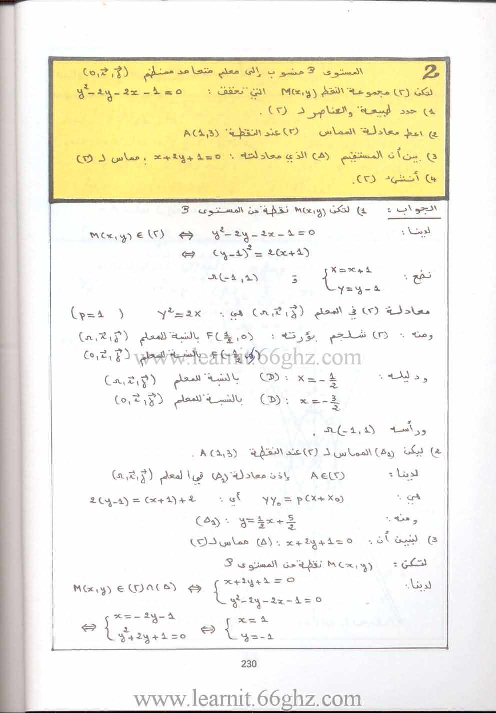 2 المستوى P منسوب إلى معلم متعامد ممنظم (O,i,j)
لتكن (Γ) مجموعة النقط M(x,y) التي تحقق : y²-2y-2x-1=0
1) حدد طبيعة والعناصر لـ (Γ).
2) اعط معادلة المماس (Γ) عند النقطة A(1,3)
3) بين أن المستقيم (Δ) الذي معادلته : x+2y+1=0 . مماس لـ (Γ)
4) أنشئ (Γ).
الجواب : 1) لتكن M(x,y) نقطة من المستوى P
لدينا : M(x,y)∈(Γ) ⇔ y²-2y-2x-1=0
⇔ (y-1)²=2(x+1)
نضع : {X=x+1 Y=y-1 و Ω(-1,1)
معادلة (Γ) في المعلم (Ω,i,j) هي : Y²=2X (p=1)
ومنه : (Γ) شلجم بؤرته : F(1/2,0) بالنسبة للمعلم (Ω,i,j)
بالنسبة للمعلم (O,i,j)
www.learnit.66ghz.com
ودليله : (D): X=-1/2 بالنسبة للمعلم (Ω,i,j)
(D): x=-3/2 بالنسبة للمعلم (O,i,j)
ورأسه Ω(-1,1) .
2) ليكن (Δ₁) المماس لـ (Γ) عند النقطة A(1,3) .
لدينا : A∈(Γ) إذن معادلة (Δ₁) في المعلم (Ω,i,j)
هي : YY₀=p(X+X₀) أي : 2(y-1)=(x+1)+2
ومنه : (Δ₁): y=1/2x+5/2
3) لنبين أن : (Δ): x+2y+1=0 مماس لـ (Γ)
لتكن : M(x,y) نقطة من المستوى P
لدينا : M(x,y)∈(Γ)∩(Δ) ⇔ {x+2y+1=0 y²-2y-2x-1=0
⇔ {x=-2y-1 y²+2y+1=0 ⇔ {x=1 y=-1
230
www.learnit.66ghz.com